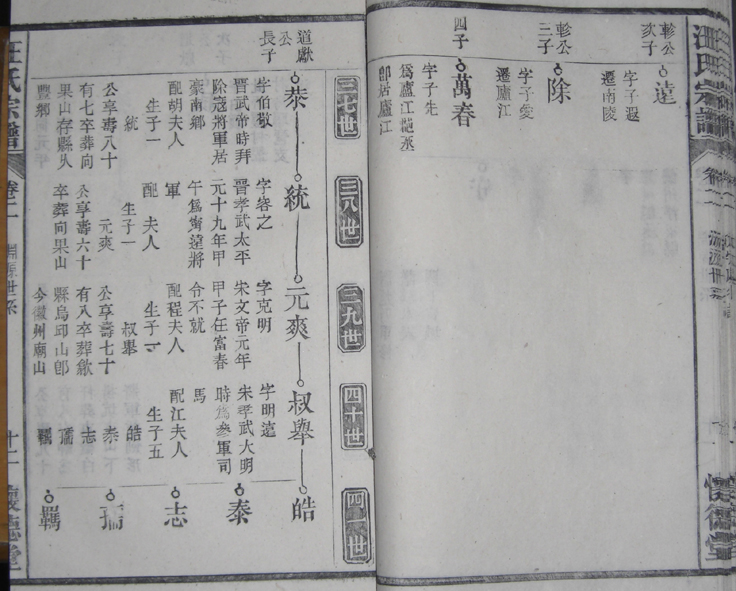 軫公
次子
遠
字子遐
遷南陵
軫公
三子
除
字子愛
遷廬江
四子
萬春
字子先
爲廬江㴩丞
卽居廬江
三七世
三八世
三九世
四十世
四一世
道獻
公
長子
恭
統
元爽
叔舉
皓
字伯敬
晉武帝時拜
除寇將軍居
豪南鄉
配胡夫人
生子一
統
公享壽八十
有七卒葬向
果山存縣
豐鄉
字容之
晉孝武太平
元十九年甲
午爲甯遠將
軍
配 夫人
生子一
元爽
公享壽六十
卒葬向果山
字克明
宋文帝元年
甲子任富春
令不就
配程夫人
生子一
叔舉
公享壽七十
有八卒葬歙
縣烏邱山卽
今徽州廟山
字明遠
宋孝武大明
時爲參軍司
馬
配江夫人
生子五
皓
泰
志
孺
羈
泰
志
孺
羈
汪氏宗譜
卷二
淵源世系
十二
懷德堂
汪氏宗譜
懷德堂